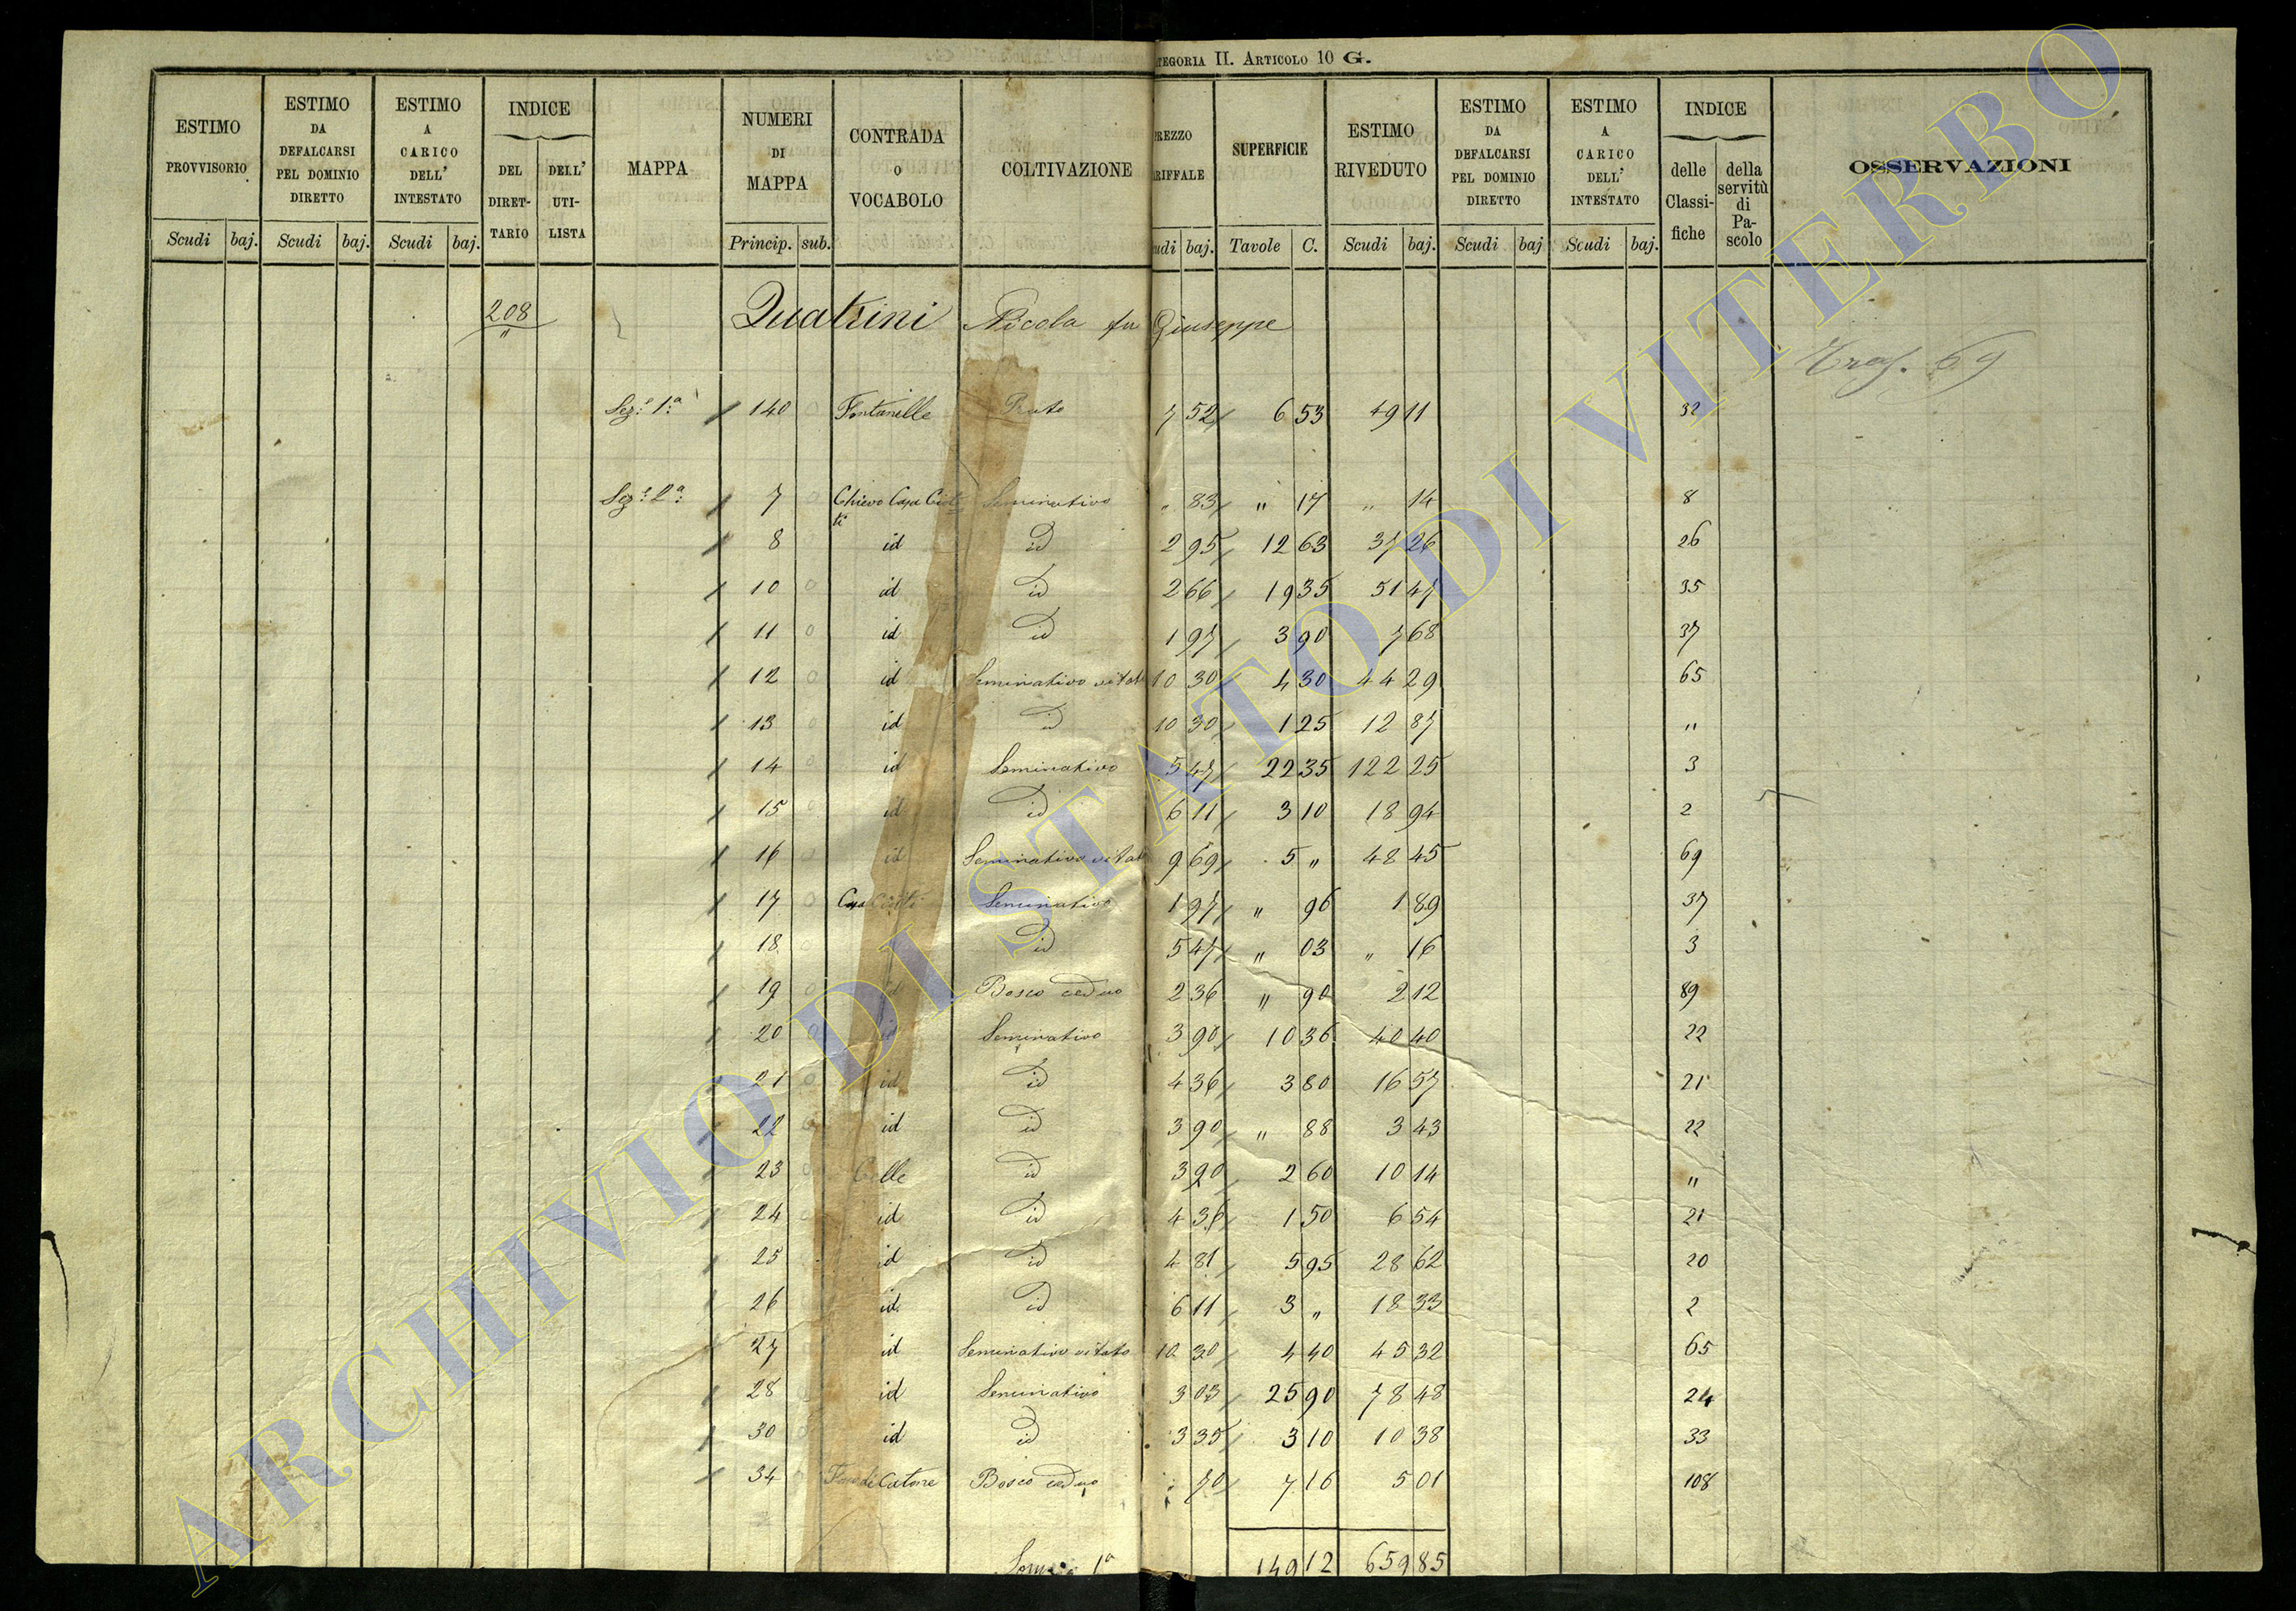 CATEGORIA II. ARTICOLO 10 G.
ESTIMO PROVVISORIO Scudi baj. ESTIMO DA DEFALCARSI PEL DOMINIO DIRETTO Scudi baj. ESTIMO A CARICO DELL' INTESTATO Scudi baj. INDICE DEL DIRETTARIO DELL' UTILISTA MAPPA NUMERI DI MAPPA Princip. sub. CONTRADA O VOCABOLO COLTIVAZIONE PREZZO TARIFFALE Scudi baj. SUPERFICIE Tavole C. ESTIMO RIVEDUTO Scudi baj. ESTIMO DA DEFALCARSI PEL DOMINIO DIRETTO Scudi baj ESTIMO A CARICO DELL' INTESTATO Scudi baj. INDICE delle Classifiche della servitù di Pascolo OSSERVAZIONI
208 " Quatrini Nicola fu Giuseppe
Traf. 69
Sez.e 1.a 140 0 Fontanelle Prato 7 52 6 53 49 11 32
Sez.e 2.a 7 0 Chievo Casa Ciotti Seminativo " 83 " 17 " 14 8
8 0 id id 2 95 12 63 37 26 26
10 0 id id 2 66 19 35 51 47 35
11 0 id id 1 97 3 90 7 68 37
12 0 id Seminativo vitato 10 30 4 30 44 29 65
13 0 id id 10 30 1 25 12 87 "
14 0 id Seminativo 5 47 22 35 122 25 3
15 0 id id 6 11 3 10 18 94 2
16 0 id Seminativo vitato 9 69 5 " 48 45 69
17 0 Casa Ciotti Seminativo 1 97 " 96 1 89 37
18 0 id 5 47 " 03 " 16 3
19 0 id Bosco ceduo 2 36 " 90 2 12 89
20 0 id Seminativo 3 90 10 36 40 40 22
21 0 id id 4 36 3 80 16 57 21
22 0 id id 3 90 " 88 3 43 22
23 0 Colle id 3 90 2 60 10 14 "
24 0 id id 4 36 1 50 6 54 21
25 0 id id 4 81 5 95 28 62 20
26 0 id id 6 11 3 " 18 33 2
27 0 id Seminativo vitato 10 30 4 40 45 32 65
28 0 id Seminativo 3 03 25 90 78 48 24
30 0 id id 3 35 3 10 10 38 33
34 0 di Catone Bosco ceduo " 70 7 16 5 01 108
Somma 1a 149 12 659 85
ARCHIVIO DI STATO DI VITERBO